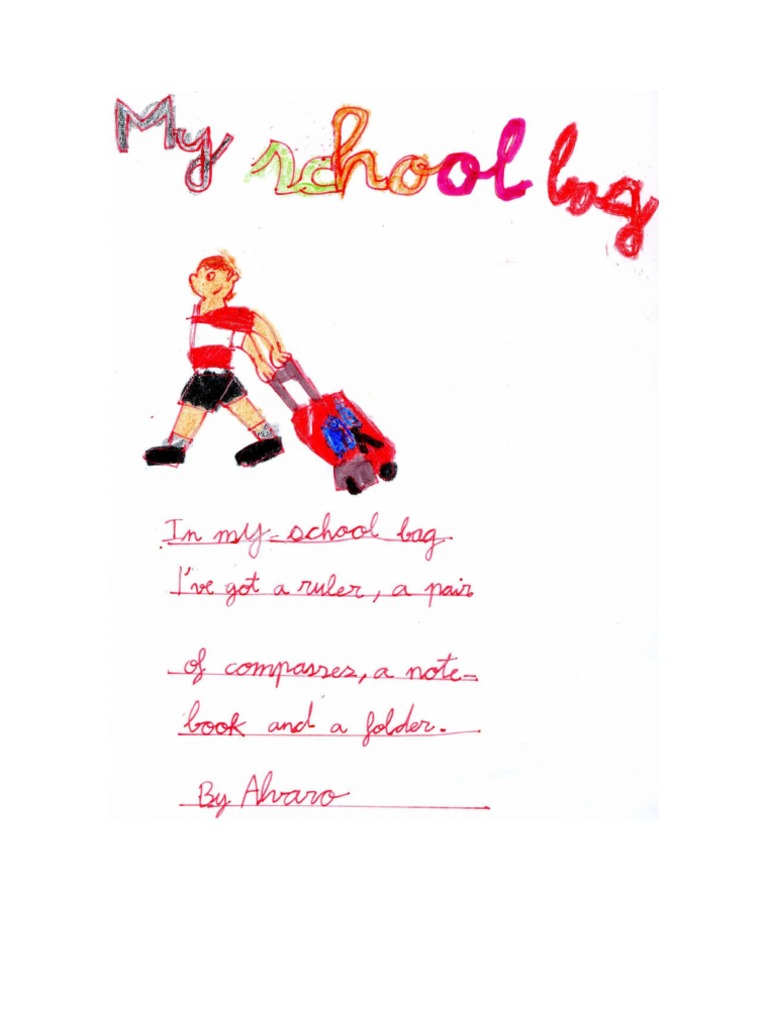 My school bag
In my school bag
I've got a ruler, a pair
of compasses, a note-
book and a folder.
By Alvaro